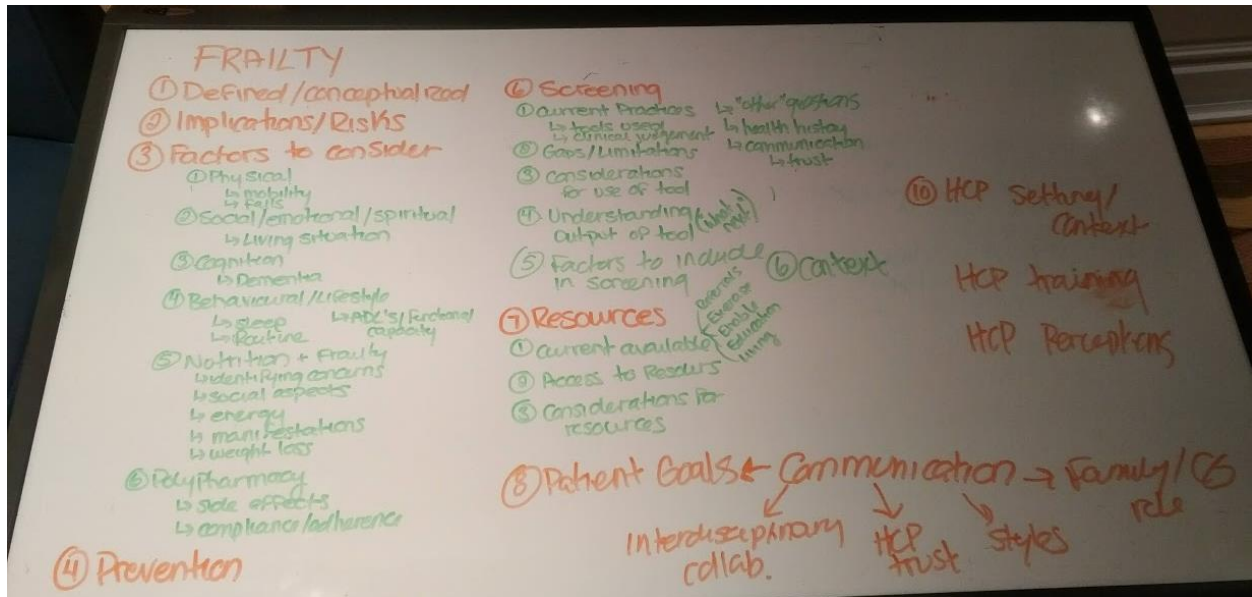 FRAILTY
① Defined/conceptualized
② Implications/Risks
③ Factors to consider
① Physical
↳ mobility
↳ falls
② Social/emotional/spiritual
↳ Living situation
③ Cognition
↳ Dementia
④ Behavioural/Lifestyle
↳ sleep ↳ ADL's/functional
↳ Routine capacity
⑤ Nutrition + Frailty
↳ identifying concerns
↳ social aspects
↳ energy
↳ manifestations
↳ weight loss
⑥ Polypharmacy
↳ side effects
↳ compliance/adherence
④ Prevention
⑥ Screening
① Current Practices ↳ "other" questions
↳ tools used/ ↳ health history
↳ clinical judgement ↳ communication
↳ trust
② Gaps/Limitations
③ Considerations
for use of tool
④ Understanding (what
output of tool next")
⑤ Factors to include ⑥ Context
in screening
⑦ Resources
① Current available
Referrals
Exercise
Enable
Education
Living
② Access to
③ Considerations for
resources
⑧ Patient Goals ← Communication → Family/CG
role
Interdisciplinary
collab.
HCP
trust
styles
⑩ HCP Setting/
Context
HCP training
HCP Perceptions